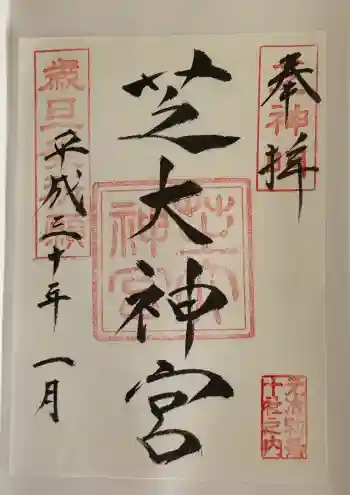 奉拝
芝大神宮
芝大神宮
平成三十年 一月
十社之内